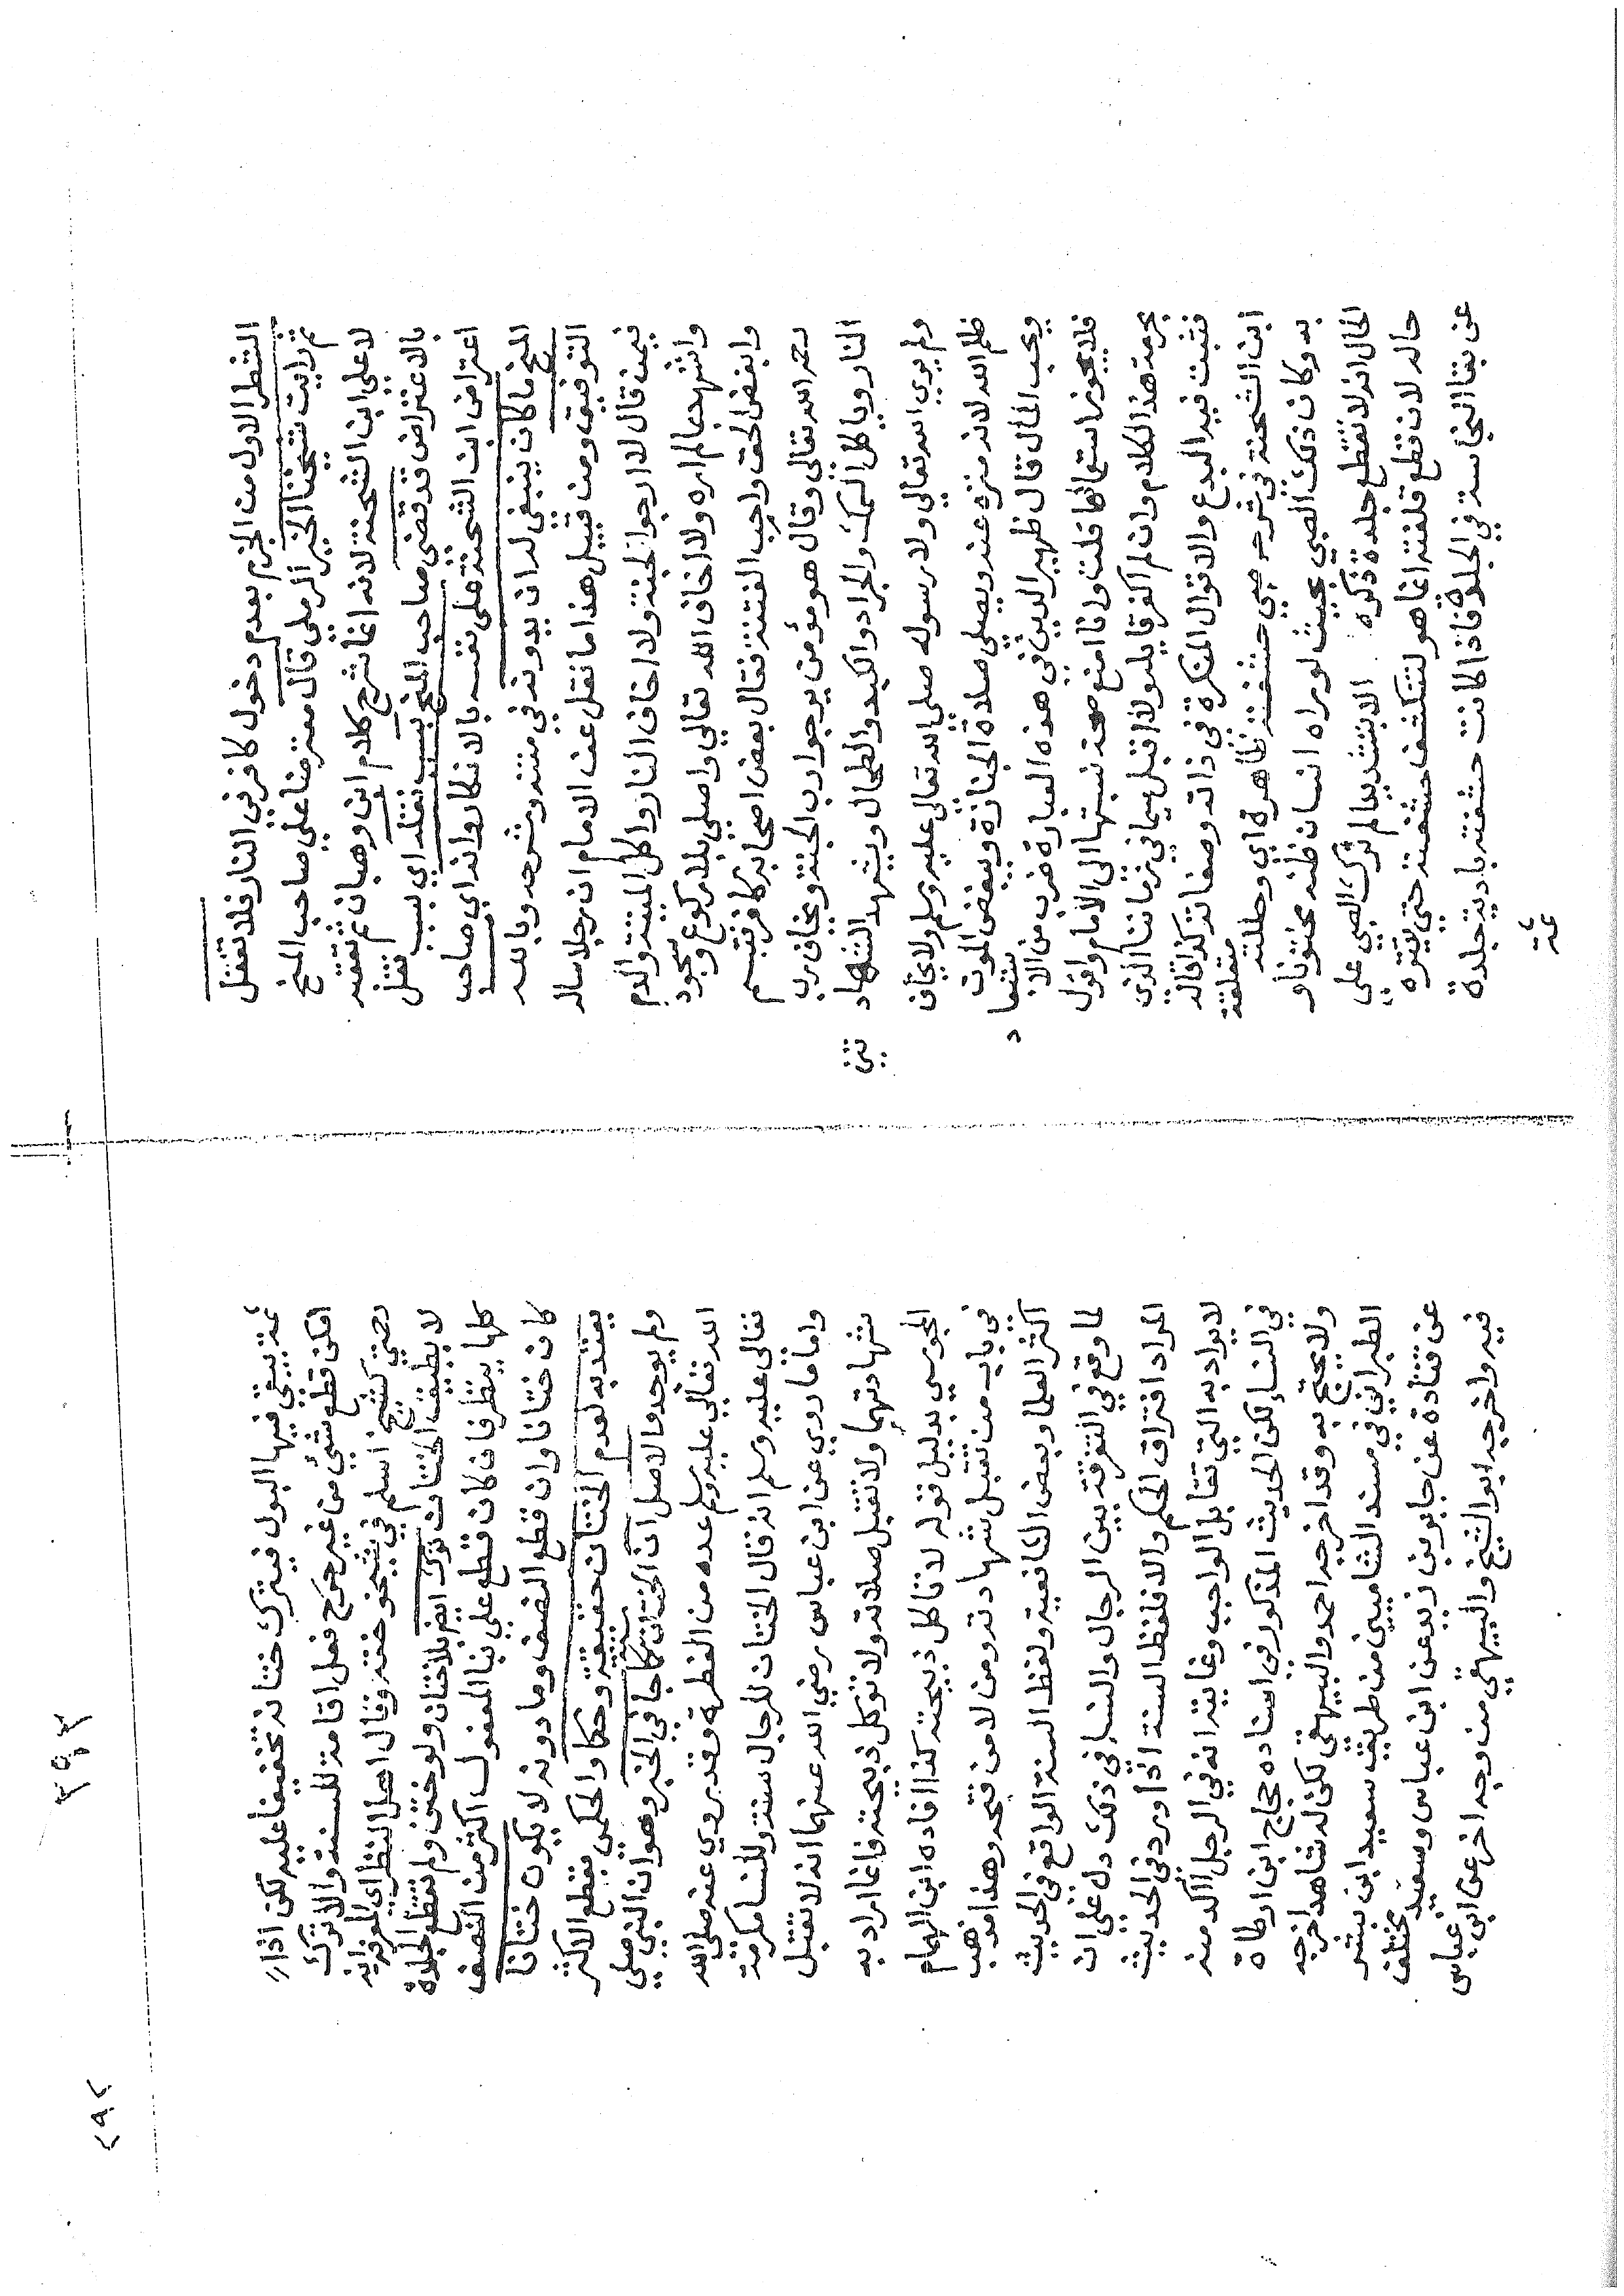 الشطر الاول من الجزم بعدم دخول كافر في النار فلا تغفل
ثم رايت شيخنا الخير الرملي قال معترضا علي صاحب المنح
لا علي ابن الشحنة لانه انما شرح كلام ابن وهبان ثم تعقبه
بالاعتراض قد قضى صاحب المنح بسبب نقله اي بسبب نقل
اعتراض ابن الشحنة على نفسه بالانكار وانه اي صاحب
المنح ما كان ينبغي له ان يدونه في متنه وشرحه وبالله
التوفيق ومن قبيل هذا ما نقل عن الامام ان رجلا ساله
فيمن قال لا ارجوا الجنة ولا اخاف النار واكل الميتة والدم
واشهد بما لم اره ولا اخاف الله تعالي واصلي بلا ركوع وسجود
وابغض الحق واحب الفتنة فقال بعض اصحابه كافر فتبسم
رحمه الله تعالى وقال هو مؤمن يرجوا رب الجنة ويخاف رب
النار وياكل السمك والجراد والكبد والطحال ويشهد الشهادتين
ولم يري الله تعالي ولا رسوله صلى الله تعالى عليه وسلم ولا يخاف
ظلم الله لانه منزه عنه ويصلي صلاة الجنازة ويبغض الموت
ويحب المال قال ظهير الدين في هذه العبارة ضرب من الاستشناعة
فلا يجوز استعمالها قلت وانا امنع صحة نسبتها الى الامام واقول
بحرمة هذا الكلام وان لم اكفر قايله ولا اقبل سيما في زماننا الذي
فشت فيه البدع والاقوال المنكرة في ذاته وصفاته كذا قاله
ابن الشحنة في شرحه صبي حشفته ظاهرة اي وحلقته متقلصة
به وكان ذلك الصبي بحيث لو راه انسان ظنه مختونا و
الحال انه لا تقطع جلدة ذكره الا بتشديد الم ترك الصبي على
حاله لان قطع قلفته انما هو لتنكشف حشفته حتي يتنزه
عن بقا النجاسة في الجلدة فاذا كانت حشفته بادية جلدة
ثمة
ثمة يبقي فيها البول فيترك ختانه تخفيفا عليه لكن اذا
امكن قطع شيء من غير حرج فعل اقامة للسنة والا ترك
حتي كشيخ اسلم في شيخوخته وقال اهل النظر اي المعرفة انه
لا يطيق الختان ترك ايضا بلا ختان ولو ختن ولم تقطع الجلدة
كلها ينظر فان كان قطع علي بنا المفعول اكثر من النصف
كان ختانا وان قطع النصف وما دونه لا يكون ختانا
يعتد به لعدم الختان حقيقة وحكما والحكمي بقطع الاكثر
ولم يوجد والاصل ان الختان سنة كما جا في الخبر وهو ان النبي صلي
الله تعالي عليه وسلم عده من الفطرة وقد يروي عنه صلى الله
تعالى عليه وسلم انه قال الختان للرجال سنة وللنسا مكرمة
واما ما روي عن ابن عباس رضي الله عنهما انه لا تقبل
شهادتهما ولا تقبل صلاته ولا توكل ذبيحته فانما اراد به
المجوسي بدليل قوله لا تاكل ذبيحته كذا افاده ابن الهمام
في باب من تقبل شهادته ومن لا من فتحه وهذا مذهب
اكثر العلما وبعض الشافعية ولفظ السنة الواقع في الحديث
لما وقع في التفرقة بين الرجال والنسا في ذلك دل على ان
المراد افتراق الحكم والا فلفظ السنة اذا ورد في الحديث
لا يراد به التي تقابل الواجب وغايته انه في الرجل اكد منه
في النساء لكن الحديث المذكور في اسناده حجاج ابن ارطاة
ولا يحتج به وقد اخرجه احمد والبيهقي لكن له شاهد اخرجه
الطبراني في مسند الشاميين من طريق سعيد ابن بشر
عن قتادة عن جابر بن زيد عن ابن عباس وسعيد مختلف
فيه واخرجه ابو الشيخ والبيهقي من وجه اخر عن ابن عباس